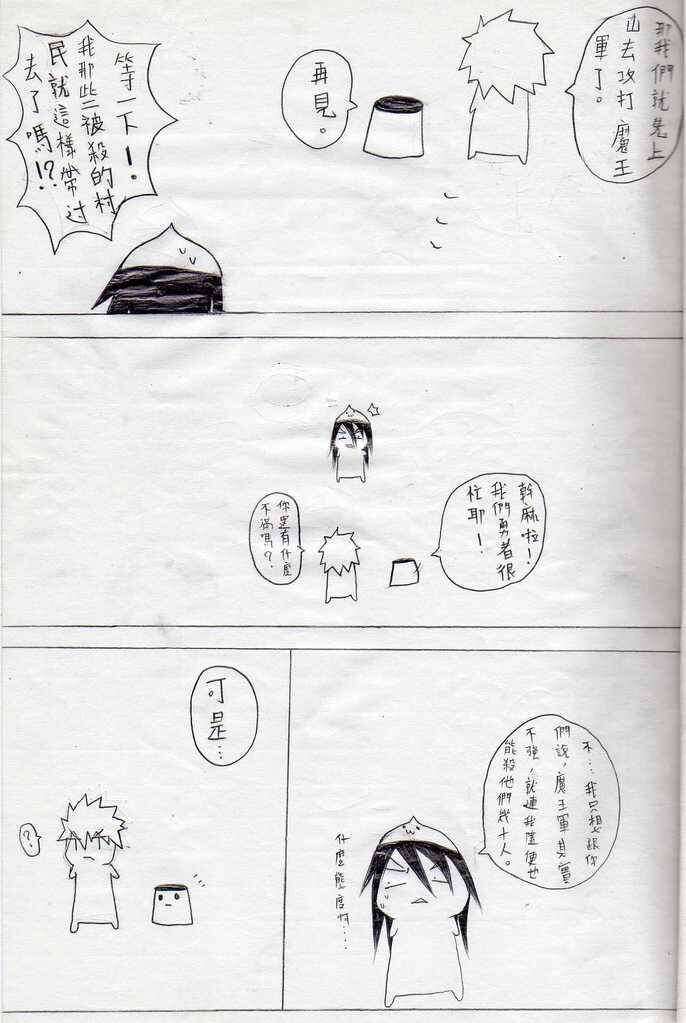 那我們就先上
山去攻打魔王
軍了。
再見。
等一下！
我那些被殺的村
民就這樣帶过
去了嗎!?
幹麻啦！
我們勇者很
忙耶！
你還有什麼
不滿嗎？
不…我只想跟你
們說，魔王軍其實
不強，就連我隨便也
能殺他們幾十人。
什麼態度阿…
可是…
?